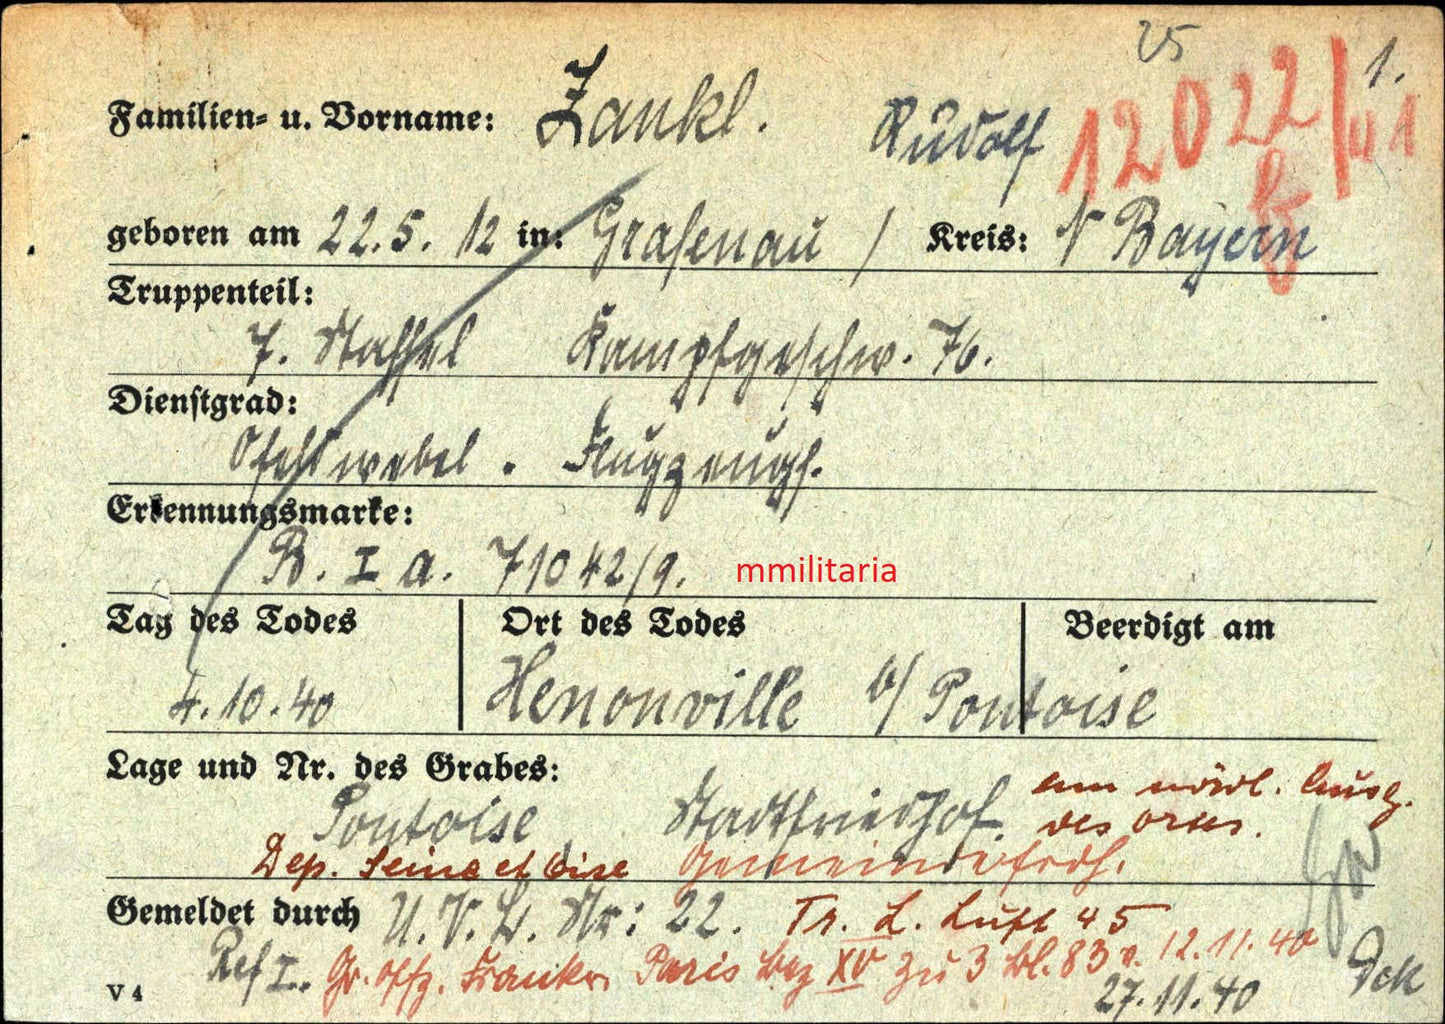 25
1.
Familien- u. Vorname: Zankl. Rudolf 12022/41
geboren am 22.5.12 in: Grafenau / Kreis: N Bayern
Truppenteil:
7. Staffel Kampfgeschw. 76.
Dienstgrad:
Ofeldwebel. Flugzeugf.
Erkennungsmarke:
B. I a. 71042/9.
mmilitaria
Tag des Todes Ort des Todes Beerdigt am
4.10.40 Henonville b/ Pontoise
Lage und Nr. des Grabes:
Pontoise Stadtfriedhof. am nördl. Ausg.
des Ortes.
Dep. Seine et Oise Gemeindefrdh.
Gemeldet durch U.V.L. Nr: 22. Tr. L. Luft 45
Ref I. Gr. Offz. Frankr. Paris Bez XV zu 3 Bl. 83 v. 12.11.40
V 4 27.11.40